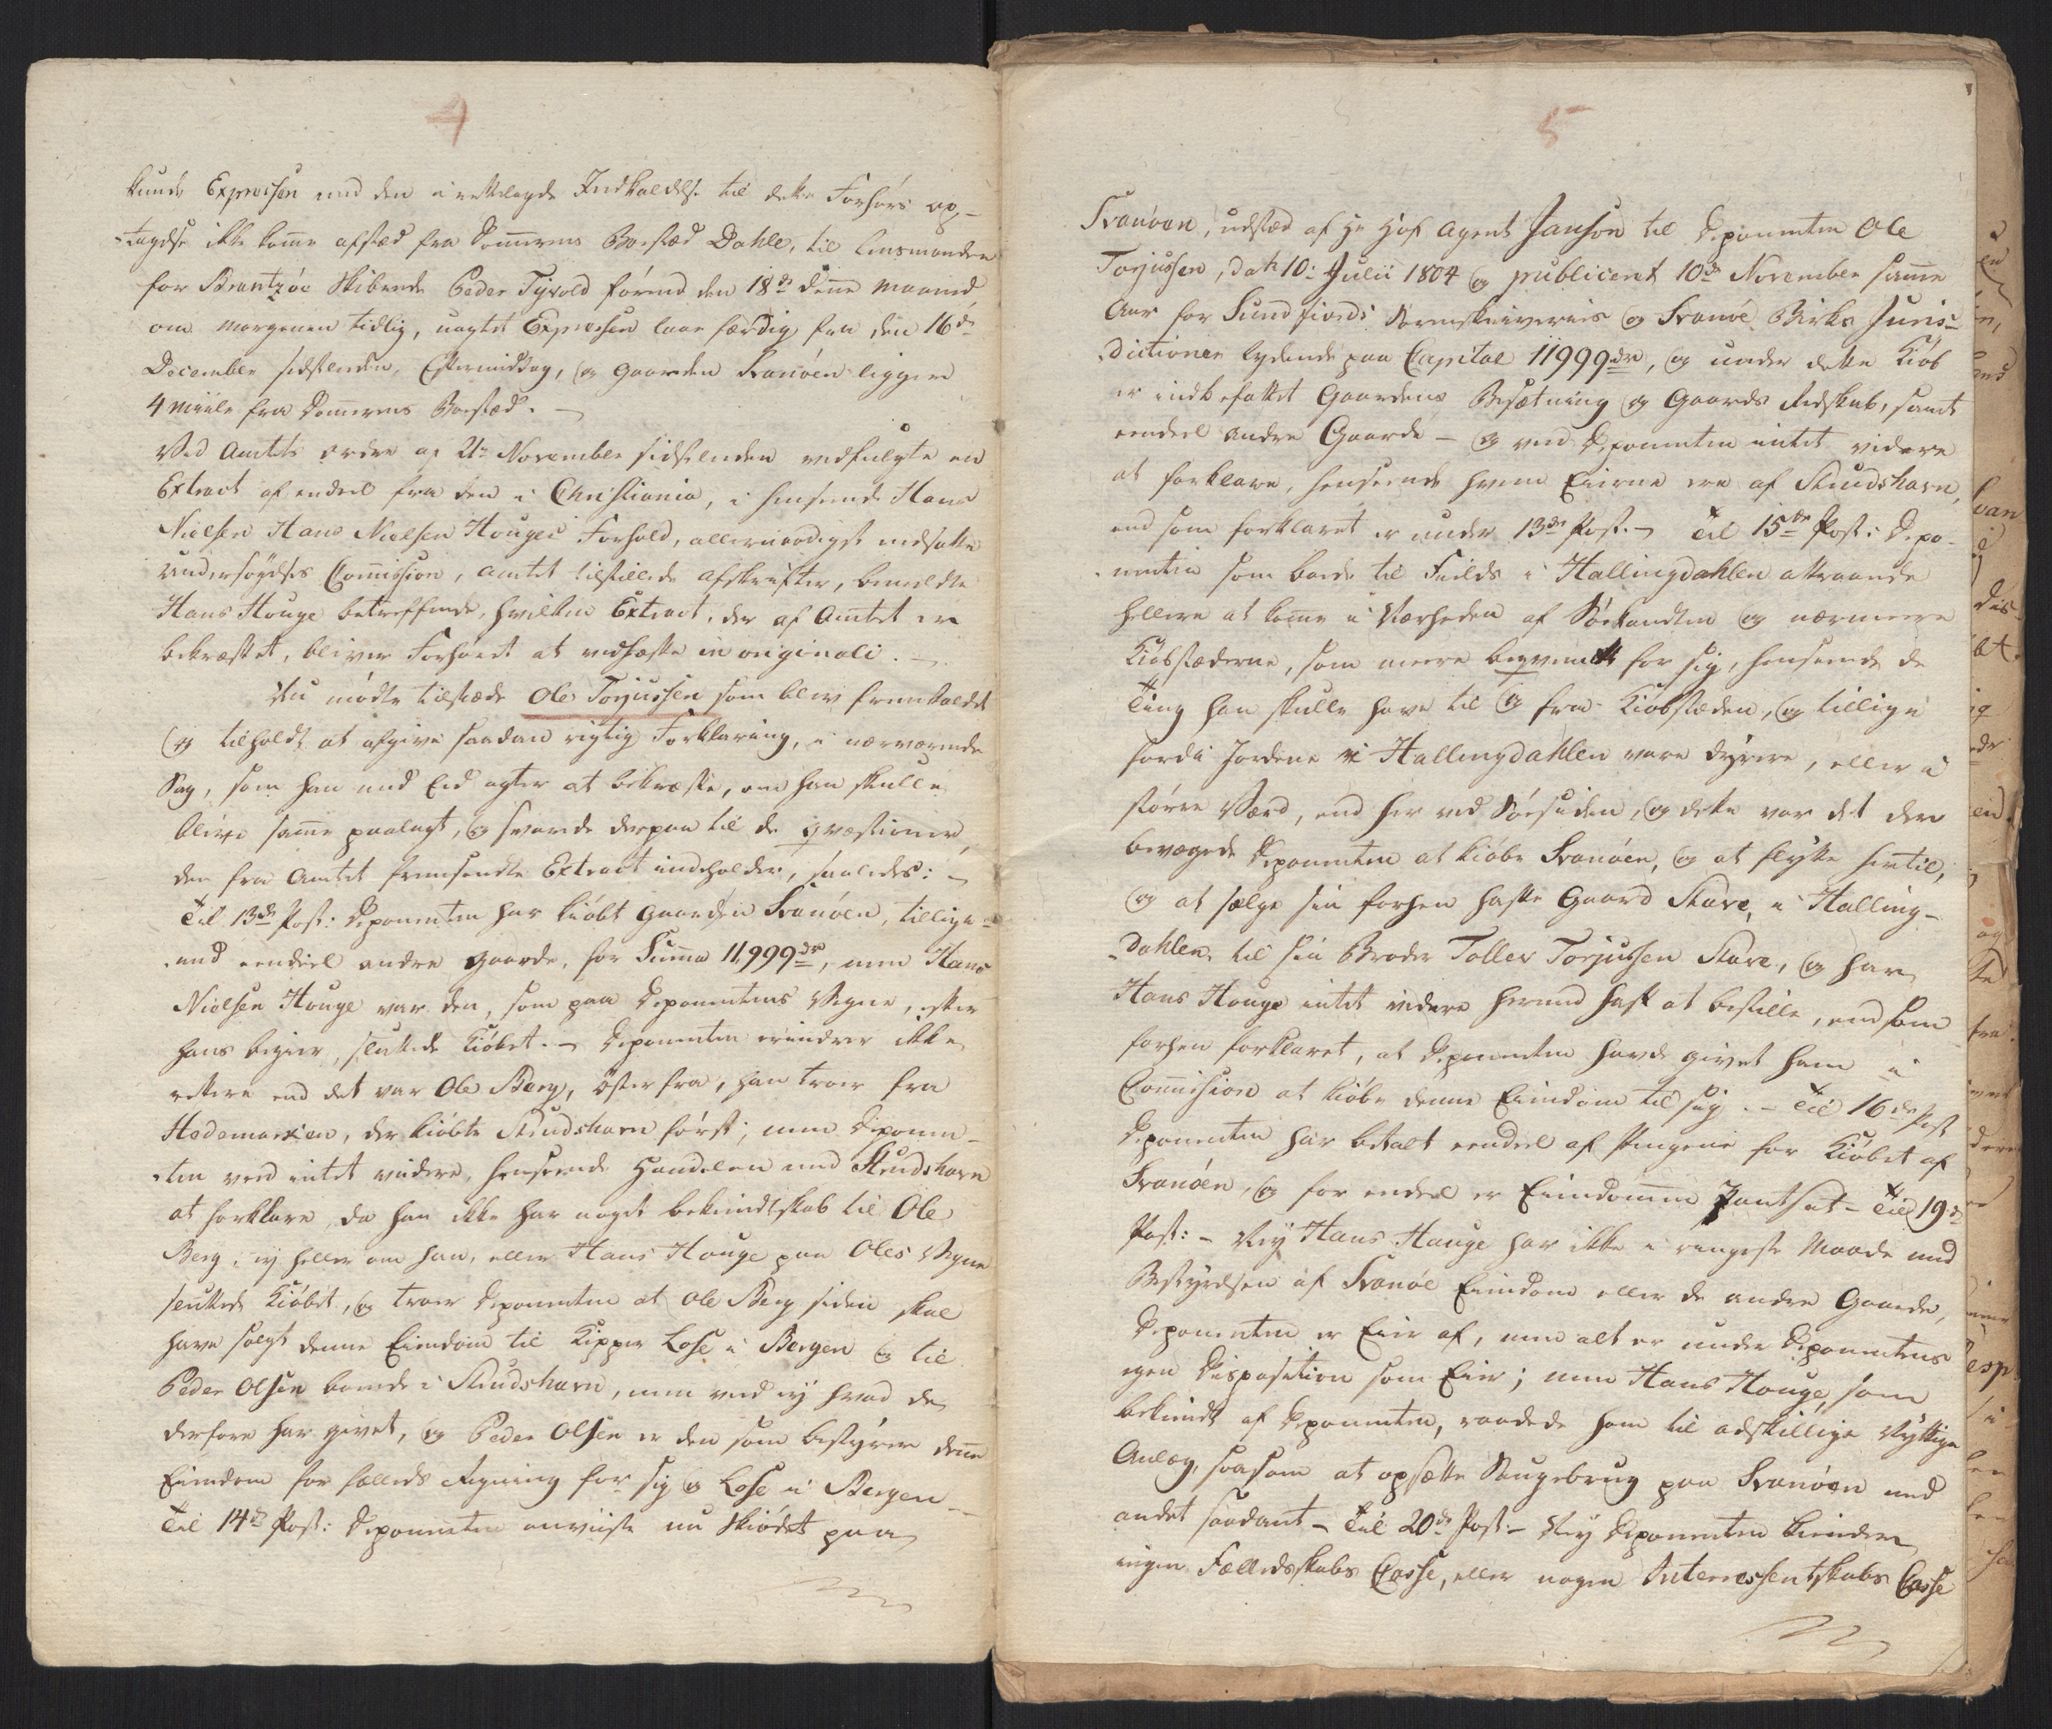 4
kunde Expressen med den i rettelagde Indkaldelse til dette Forhørs op-
tagelse ikke komme afsted fra Dommerens Boestæd Dahle, til Lensmanden
for Brantzøe Skibrede Peder Tyvold førend den 18de denne Maaned
om Morgenen tidlig, uagtet Expressen laae færdig fra den 16de
December sidstleden, Eftermiddag, og Gaarden Svanøen ligger
4 Miile fra Dommerens Boestæd. —
Ved Amtets Ordre af 21de November sidstleden vedfulgte en
Extract af endeel fra den i Christiania, i henseende Hans
Nielsen Hans Nielsen Houges Forhold, allernaadigst nedsatte
Undersøgelses Commission, Amtet tilstillede Afskrifter, bemeldte
Hans Houge betreffende, hvilken Extract, der af Amtet er
bekræftet, bliver Forhøret at vedhæfte in originali. —
Nu mødte tilstæde Ole Torjussen som blev fremkaldet
og tilholdt at afgive saadan rigtig Forklaring, i nærværende
Sag, som han med Eed agter at bekræfte, om han skulle
blive samme paalagt, og svarede derpaa til de qvæstioner,
den fra Amtet fremsendte Extract indeholder, saaledes: —
Til 13de Post: Deponenten har kiøbt Gaarden Svanøen, tillige-
med eendeel andre Gaarde, for Summa 11,999 rdr, men Hans
Nielsen Houge var den, som paa Deponentens Vegne, efter
hans begier, sluttede Kiøbet. — Deponenten erindrer ikke
rettere end det var Ole Berg, Øster fra, han troer fra
Hedemarken, der kiøbte Studshavn først; men Deponen-
ten veed intet videre, henseende Handelen med Studshavn
at forklare, da han ikke har noget bekiendtskab til Ole
Berg, ej heller om han, eller Hans Houge paa Oles Vegne
sluttede Kiøbet, og troer Deponenten at Ole Berg siden skal
have solgt denne Eiendom til Kipper Lose i Bergen og til
Peder Olsen boende i Studshavn, men veed ej hvad de
derfore har givet, og Peder Olsen er den som bestyrer denne
Eiendom for fælleds Regning for sig og Lose i Bergen —
Til 14de Post: Deponenten anviiste nu Skiødet paa
5
Svanøen, udsted af Hr Hof Agent Janson til Deponenten Ole
Torjussen, dat 10: Julii 1804 og publiceret 10de November samme
Aar for Sundfiords Sorenskriveries og Svanøe Birks Juris-
dictioner lydende paa Capital 11999 rdr, og under dette Kiøb
er indbefattet Gaardens Besætning og Gaards Redskab, samt
eendeel andre Gaarde — og veed Deponenten intet videre
at forklare, henseende hvem Eierne ere af Studshavn,
end som forklaret er under 13de Post. — Til 15de Post: Depo-
nenten som boede til Fields i Hallingdahlen attraaede
hellere at komme i Nærheden af Søekandten og nærmere
Kiøbstæderne, som meere beqvemt for sig, henseende de
Ting han skulle have til og fra Kiøbstæden, og tillige
fordi Jordene i Hallingdahlen vare dyrere, eller i
større Værd, end her ved Søesiden, og dette var det der
bevægede Deponenten at kiøbe Svanøen, og at flytte hertil,
og at sælge sin forhen hafte Gaard Skare, i Halling-
dahlen, til sin Broder Tollev Torjussen Skare, og har
Hans Houge intet videre hermed haft at bestille, end som
forhen forklaret, at Deponenten havde givet ham i
Commission at kiøbe denne Eiendom til sig. — Til 16de Post
Deponenten har betalt eendeel af Pengene for Kiøbet af
Svanøen, og for endeel er Eiendommen Pantsat — Til 19de
Post: — Nej Hans Hauge har ikke i ringeste Maade med
Bestyrelsen af Svanøe Eiendom eller de andre Gaarde,
Deponenten er Eier af, men alt er under Deponentens
egen Disposition som Eier; men Hans Houge, som
bekiendt af Deponenten, raadede ham til adskillige Nyttige
Anlæg, saasom at opsætte Saugebrug paa Svanøen med
andet saadant — Til 20de Post — Nej Deponenten kiender
ingen Fælledsskabs Casse, eller nogen Interessentskabs Casse